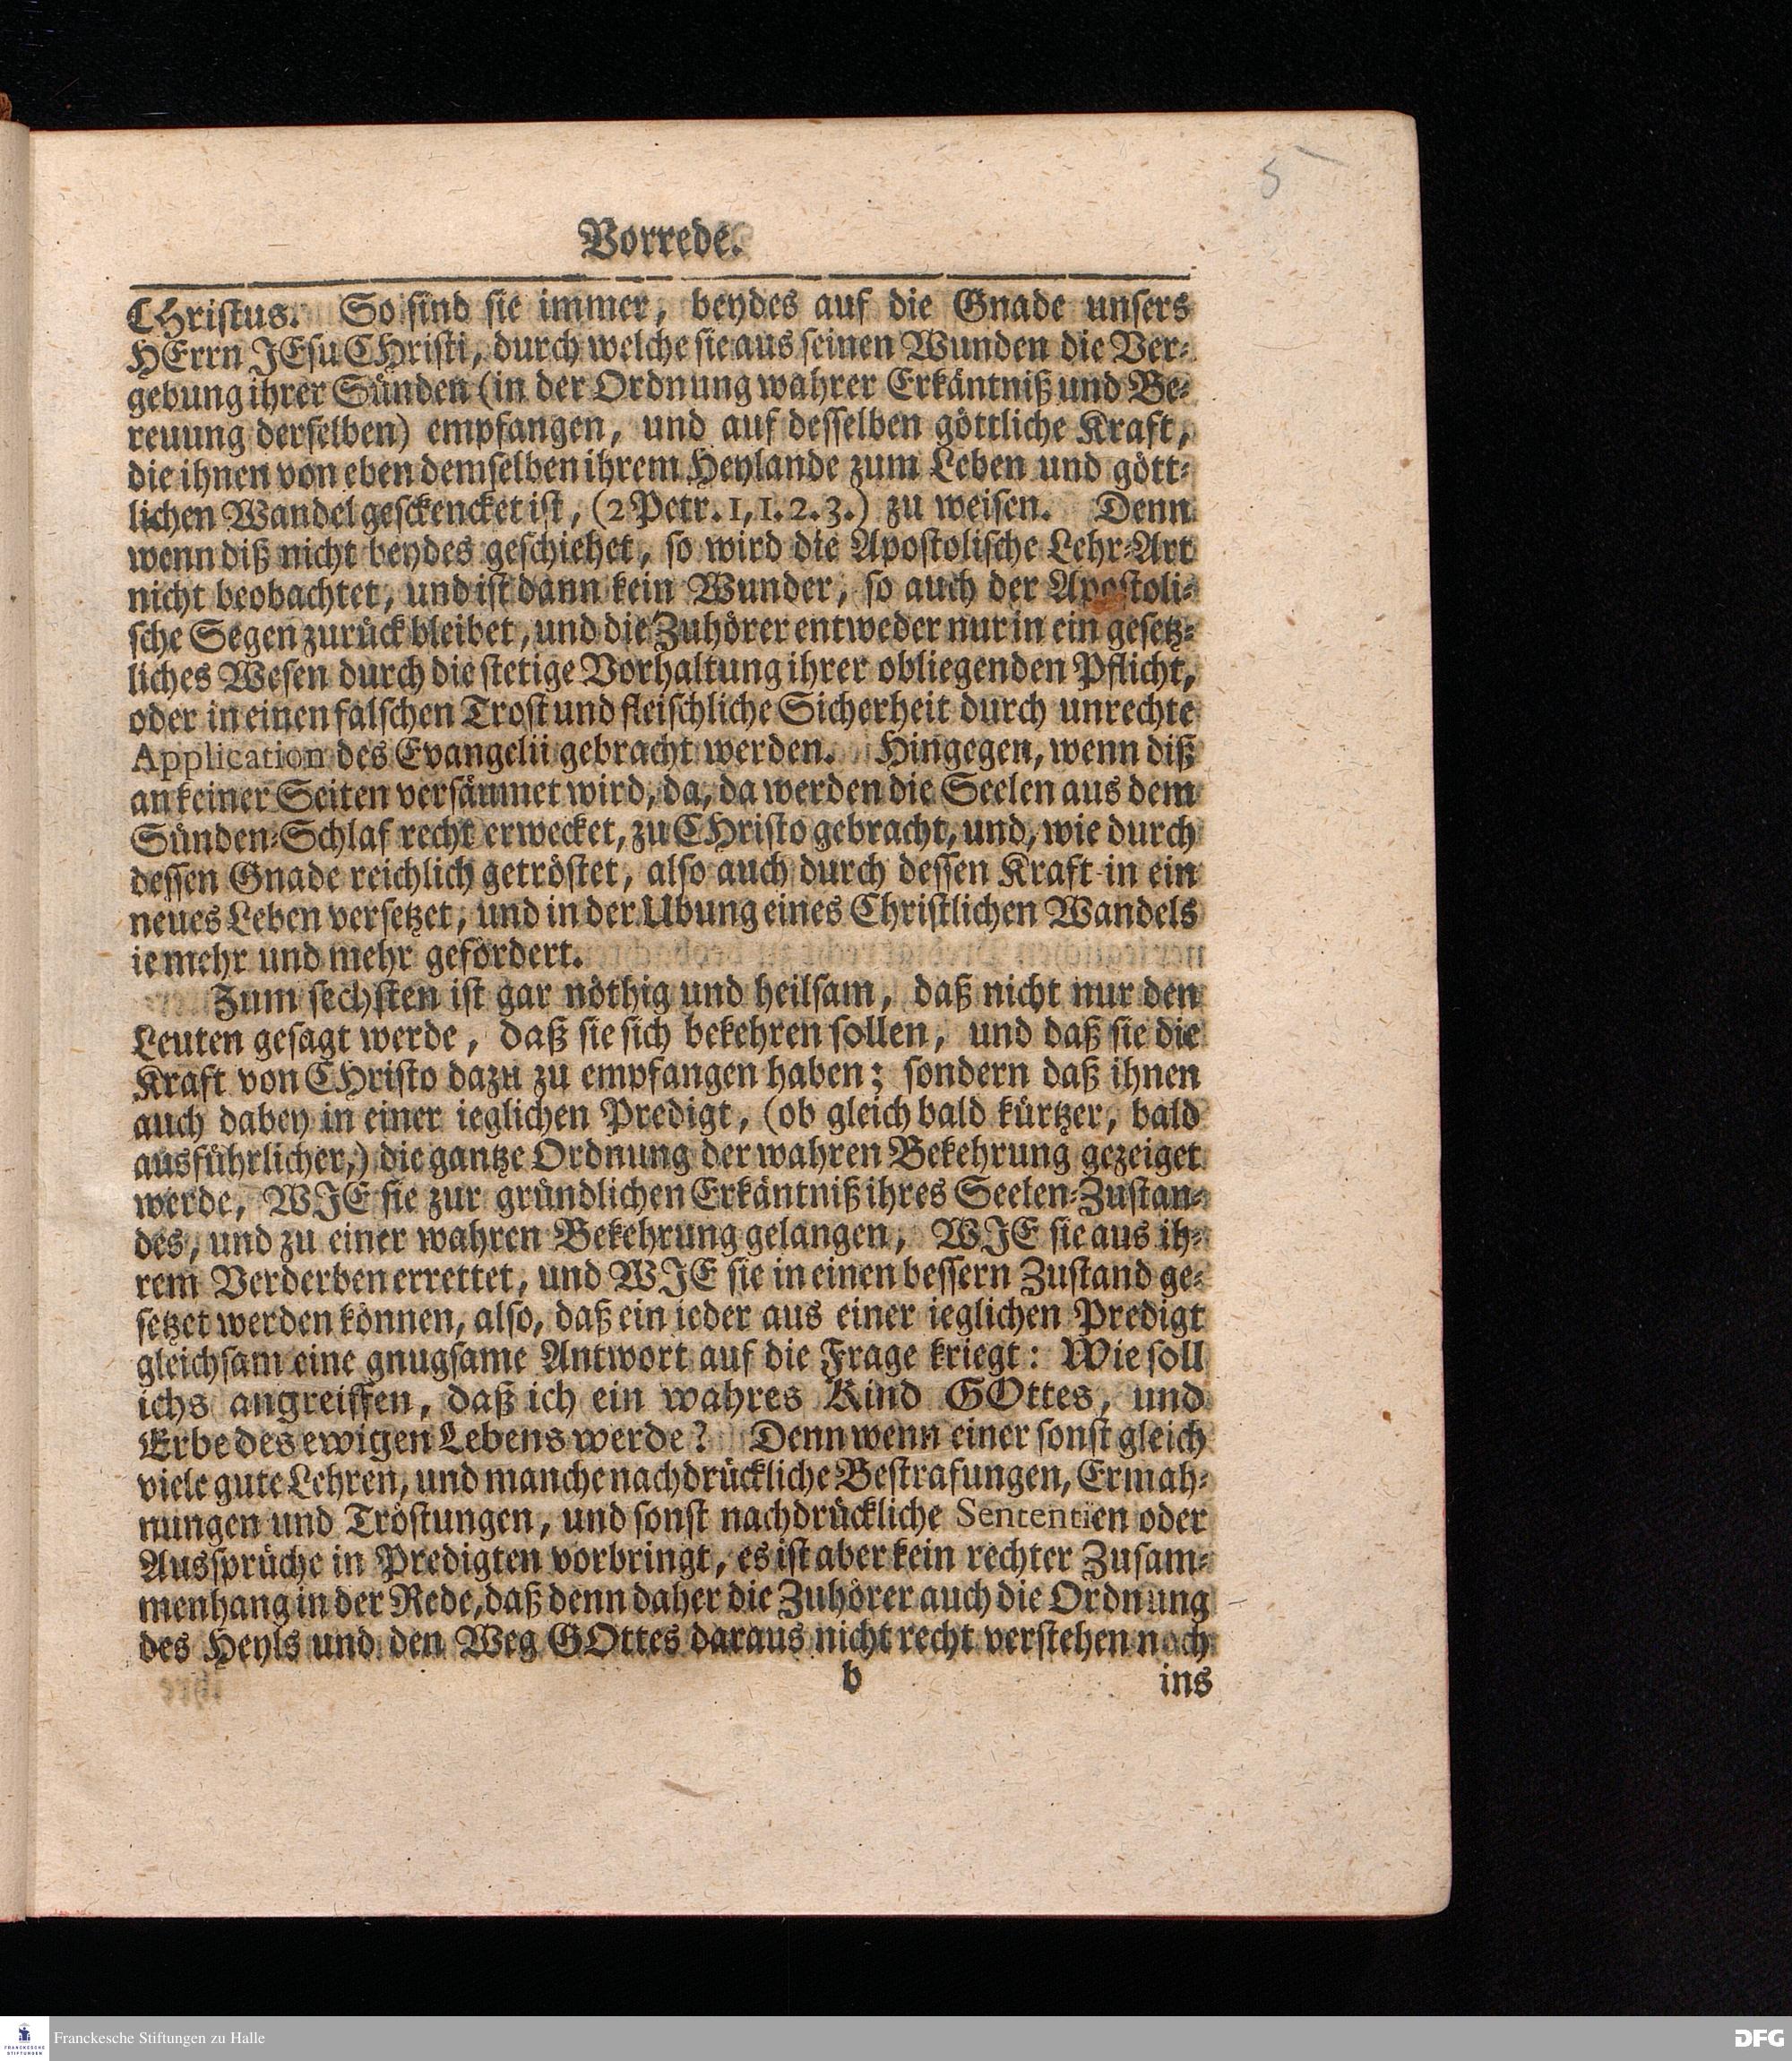 5
Vorrede.
CHristus. So sind sie immer, beydes auf die Gnade unsers
HErrn JEsu CHristi, durch welche sie aus seinen Wunden die Ver-
gebung ihrer Sünden (in der Ordnung wahrer Erkäntniß und Be-
reuung derselben) empfangen, und auf desselben göttliche Kraft,
die ihnen von eben demselben ihrem Heylande zum Leben und gött-
lichen Wandel gesckencket ist, (2 Petr. 1, 1. 2. 3.) zu weisen. Denn
wenn diß nicht beydes geschiehet, so wird die Apostolische Lehr-Art
nicht beobachtet, und ist dann kein Wunder, so auch der Apostoli-
sche Segen zurück bleibet, und die Zuhörer entweder nur in ein gesetz-
liches Wesen durch die stetige Vorhaltung ihrer obliegenden Pflicht,
oder in einen falschen Trost und fleischliche Sicherheit durch unrechte
Application des Evangelii gebracht werden. Hingegen, wenn diß
an keiner Seiten versäumet wird, da, da werden die Seelen aus dem
Sünden-Schlaf recht erwecket, zu CHristo gebracht, und, wie durch
dessen Gnade reichlich getröstet, also auch durch dessen Kraft in ein
neues Leben versetzet, und in der Ubung eines Christlichen Wandels
ie mehr und mehr gefördert.
Zum sechsten ist gar nöthig und heilsam, daß nicht nur den
Leuten gesagt werde, daß sie sich bekehren sollen, und daß sie die
Kraft von CHristo dazu zu empfangen haben; sondern daß ihnen
auch dabey in einer ieglichen Predigt, (ob gleich bald kürtzer, bald
ausführlicher,) die gantze Ordnung der wahren Bekehrung gezeiget
werde, WJE sie zur gründlichen Erkäntniß ihres Seelen-Zustan-
des, und zu einer wahren Bekehrung gelangen, WJE sie aus ih-
rem Verderben errettet, und WJE sie in einen bessern Zustand ge-
setzet werden können, also, daß ein ieder aus einer ieglichen Predigt
gleichsam eine gnugsame Antwort auf die Frage kriegt: Wie soll
ichs angreiffen, daß ich ein wahres Kind GOttes, und
Erbe des ewigen Lebens werde? Denn wenn einer sonst gleich
viele gute Lehren, und manche nachdrückliche Bestrafungen, Ermah-
nungen und Tröstungen, und sonst nachdrückliche Sententien oder
Aussprüche in Predigten vorbringt, es ist aber kein rechter Zusam-
menhang in der Rede, daß denn daher die Zuhörer auch die Ordnung
des Heyls und den Weg GOttes daraus nicht recht verstehen noch
b ins
Franckesche Stiftungen zu Halle
FRANCKESCHE
STIFTUNGEN
DFG